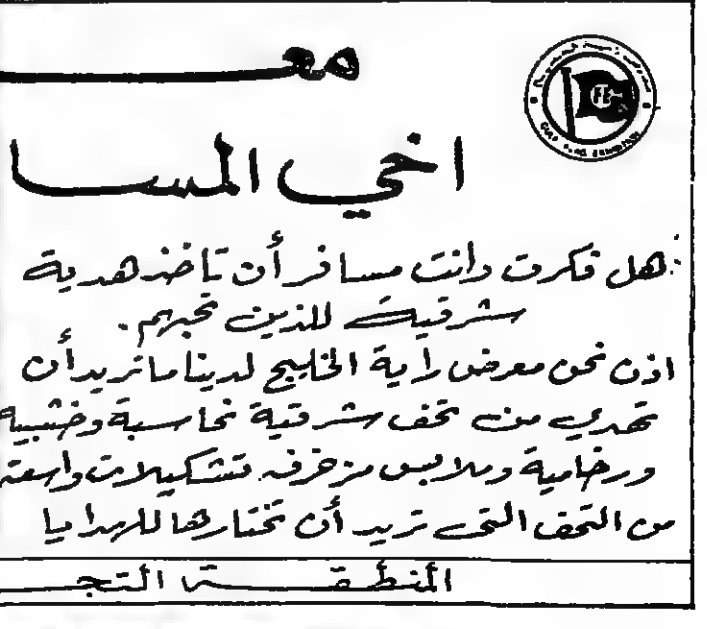 معـ
اخي المسا
هل فكرت وانت مسافر أن تاخذ هدية
شرقية للذين تحبهم.
اذن نحن معرض راية الخليج لدينا ما تريد أن
تهدي من تحف شرقية نحاسية وخشبية
ورخامية وملابس مزخرفه تشكيلات واسعة
من التحف التي تريد أن تختارها للهدايا
المنطقـــة التجـــ